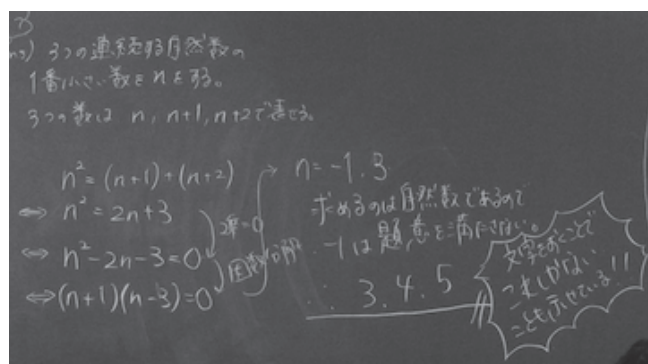 3つの連続する自然数の
1番小さい数をnをする。
3つの数は n, n+1, n+2で表せる。
n²=(n+1)+(n+2)
⇔ n²=2n+3
⇔ n²-2n-3=0
⇔(n+1)(n-3)=0
2次=0
因数分解
n=-1.3
求めるのは自然数であるので
-1は題意を満たさない。
∴ 3.4.5
文字をおくことで
これしかない
ことも示せている!!